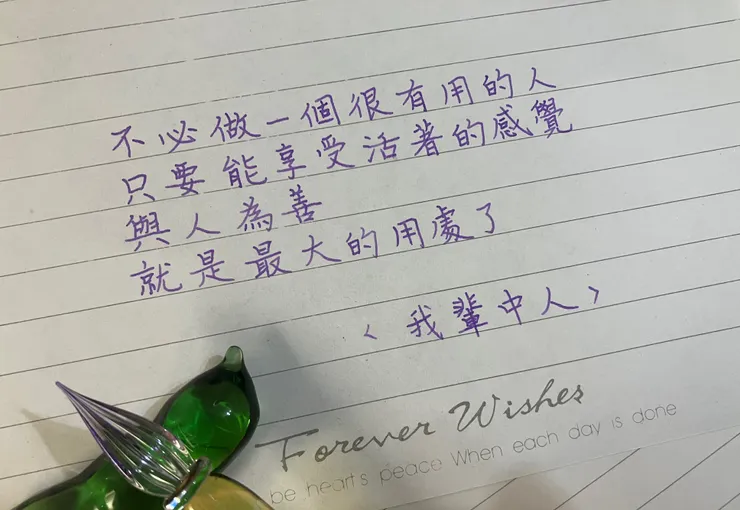 不必做一個很有用的人
只要能享受活著的感覺
與人為善
就是最大的用處了
〈我輩中人〉
Forever Wishes
be hearts peace When each day is done